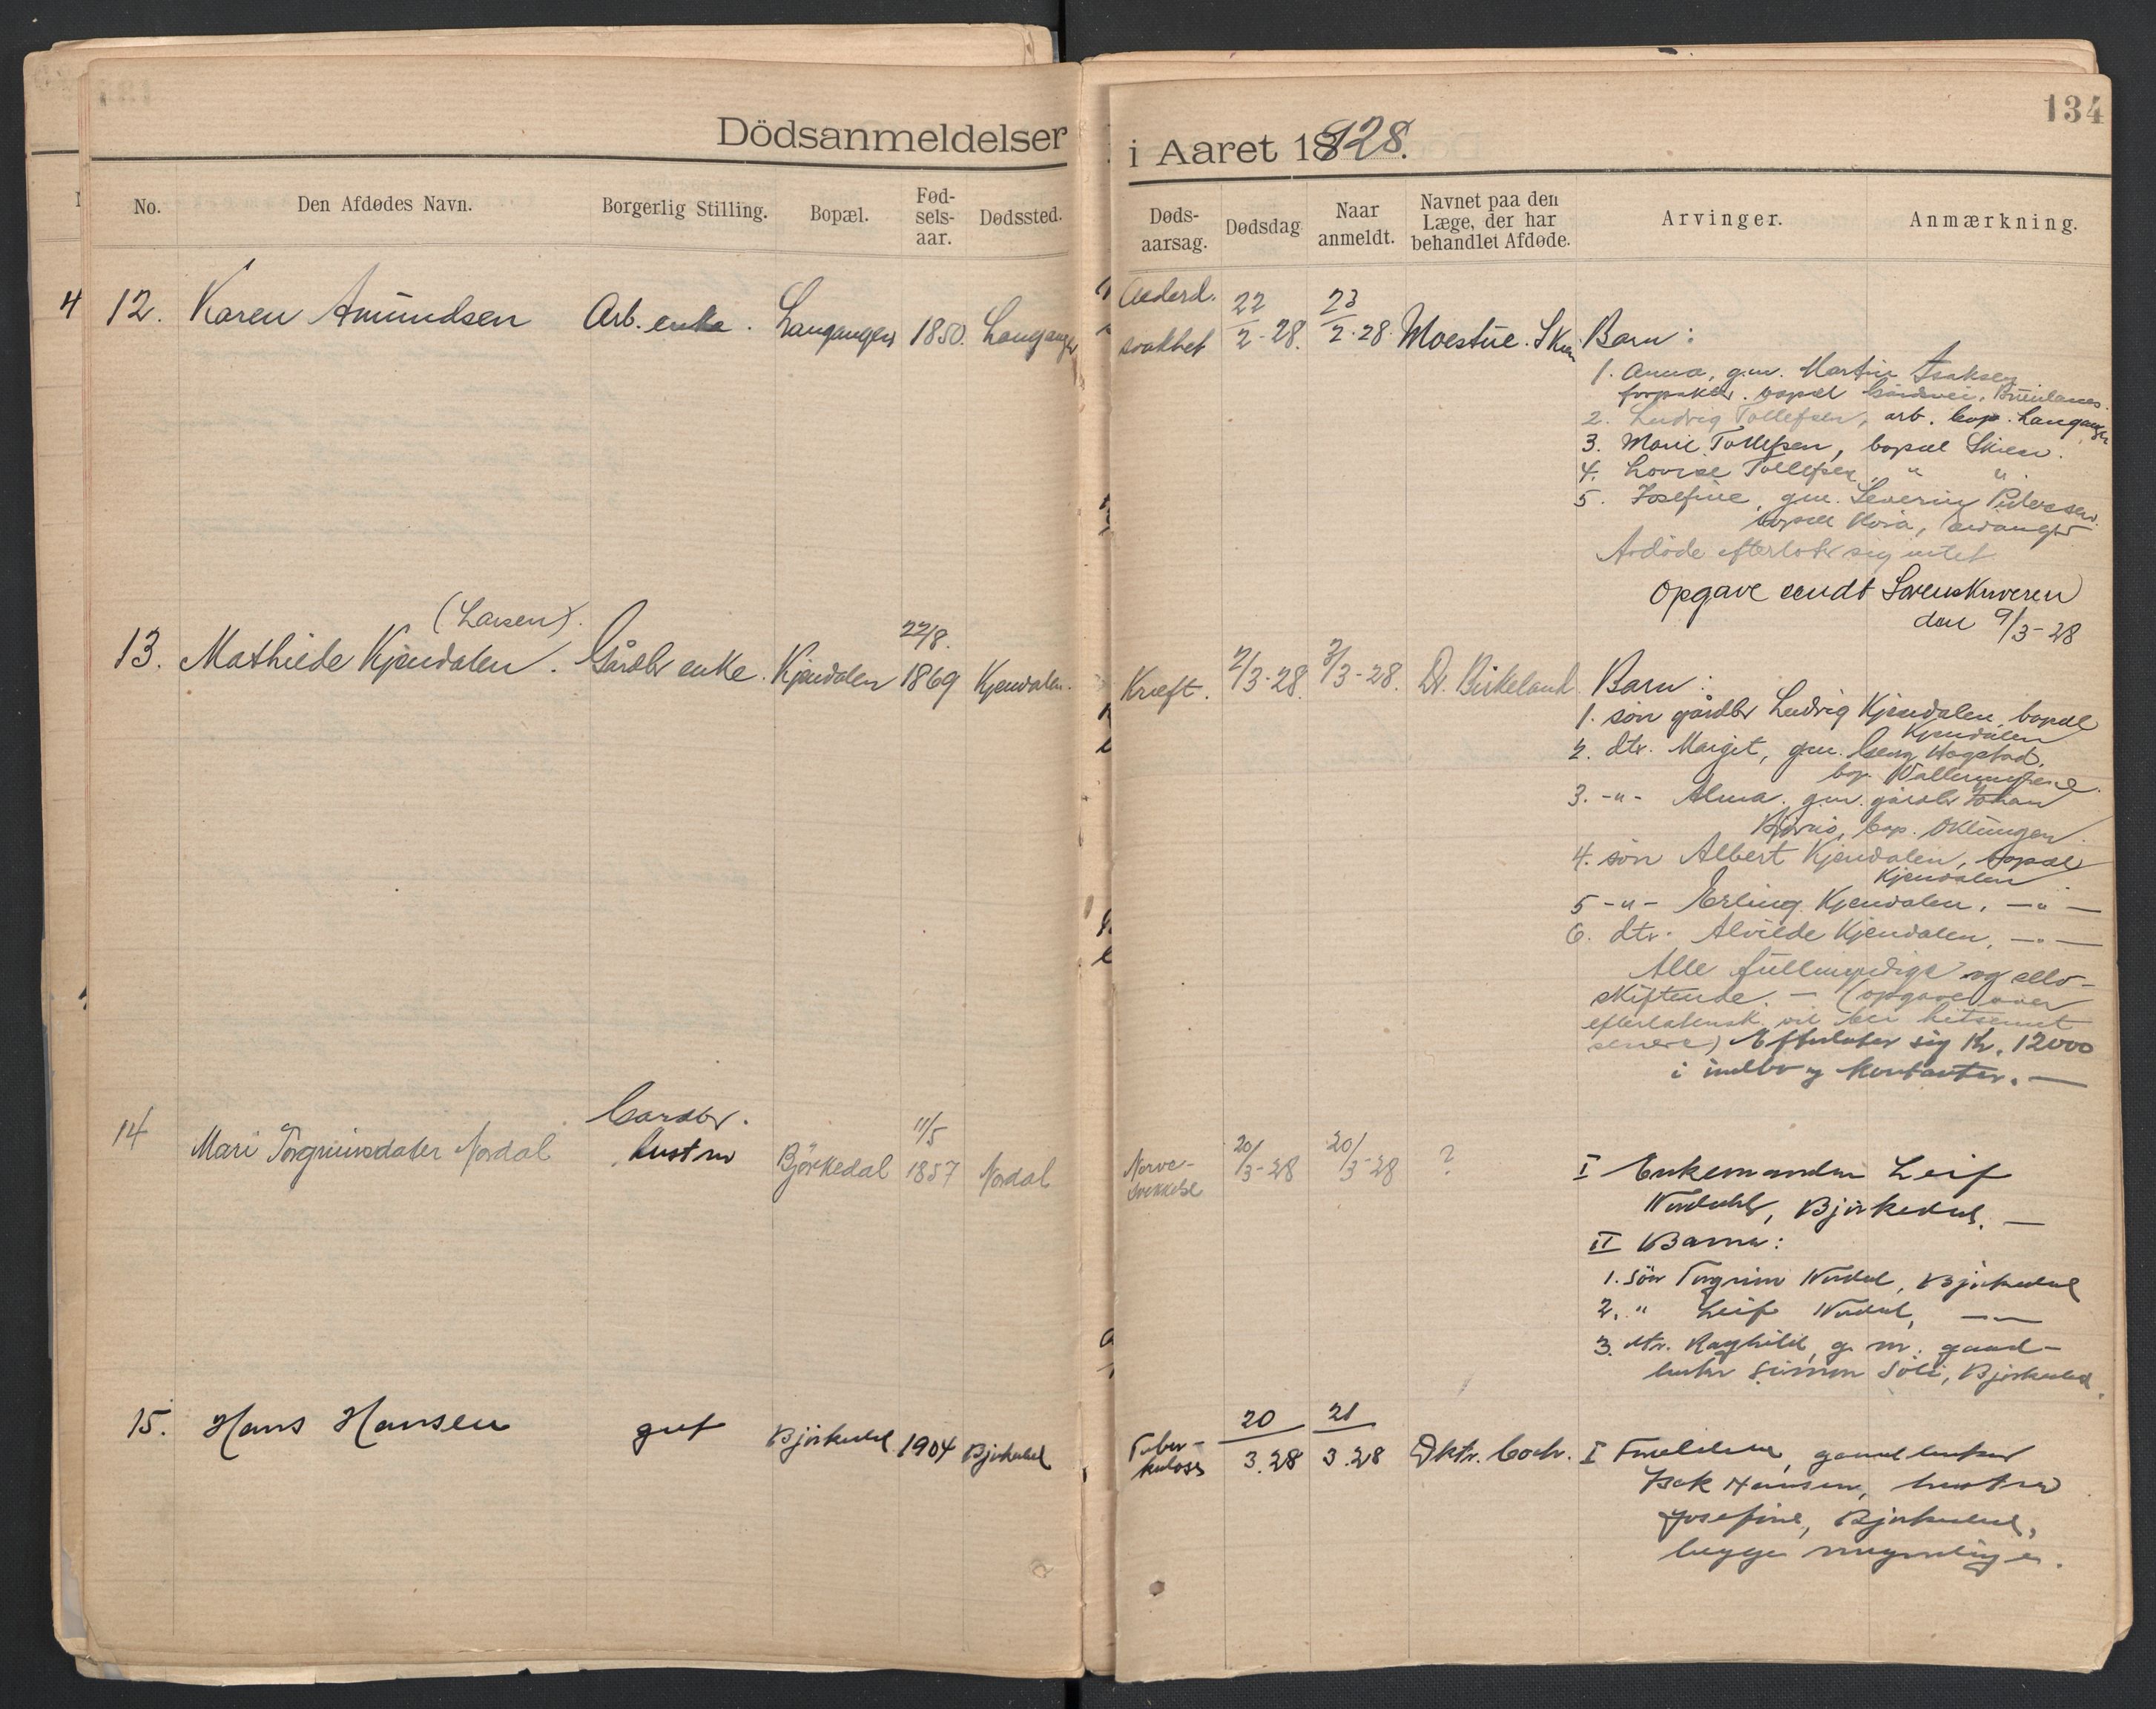 134
Dödsanmeldelser i Aaret 1928.
No. Den Afdødes Navn. Borgerlig Stilling. Bopæl. Fød-sels-aar. Dødssted. Døds-aarsag. Dødsdag Naar anmeldt. Navnet paa den Læge, der har behandlet Afdøde. Arvinger. Anmærkning.
4
12. Karen Amundsen Arb. enke. Langangen 1850. Langangen
Alderd.
svakhet 22/2-28. 23/2-28 Moestue. Skien Barn:
1. Anna, g.m. Martin Isaksen
forpakter. bopæl
2. Ludvig Tollefsen, arb. bop. Langangen
3. Marie Tollefsen, bopæl Skien.
4. Lovise Tollefsen " "
5. Josefine, gm. Severin Pedersen.
bopæl Eidanger
Avdöde efterlot sig intet
Opgave sendt Sorenskriveren
den 9/3-28
13. Mathilde Kjendalen (Larsen). Gårdbr enke. Kjendalen 22/8. 1869 Kjendalen.
Kræft. 2/3-28. 3/3-28. Dr. Birkeland Barn:
1. sön gårdbr Ludvig Kjendalen, bopæl
Kjendalen
2. dtr. Margit, gm. Georg Hogstad,
bop. Vallermyrene.
3. -"- Alma. gm. gårdbr Johan
bop. Oklungen
4. sön Albert Kjendalen, bopæl
Kjendalen
5 -"- Erling Kjendalen, -"-
6. dtr. Alvilde Kjendalen, -"-
Alle fullmyndige og selv-
skiftende. - (opgave over
efterlatensk. vil bli hitsendt
senere) Efterlater sig Kr. 12000
i indbo og kontanter. -
14 Mari Torgrimsdater Nordal Gardbr.
hustru Björkedal 11/5 1857 Nordal
Nerve-
svekkelse 20/3-28 20/3-28 ?
I Enkemanden Leif
Nordahl, Björkedal. -
II Barna:
1. sön Torgrim Nordal, Björkedal
2. " Leif Nordal, -"-
3. dtr. Raghild, g. m. gaard-
bruker Simon Söli, Björkedal.
15. Hans Hansen gut Björkedal 1904 Björkedal
Tuber-
kulose 20/3.28 21/3.28 Dktr. Coch.
I Forældrene, gaardbruker
Isak Hansen, hustru
Josefine, Björkedal,
begge myndige.